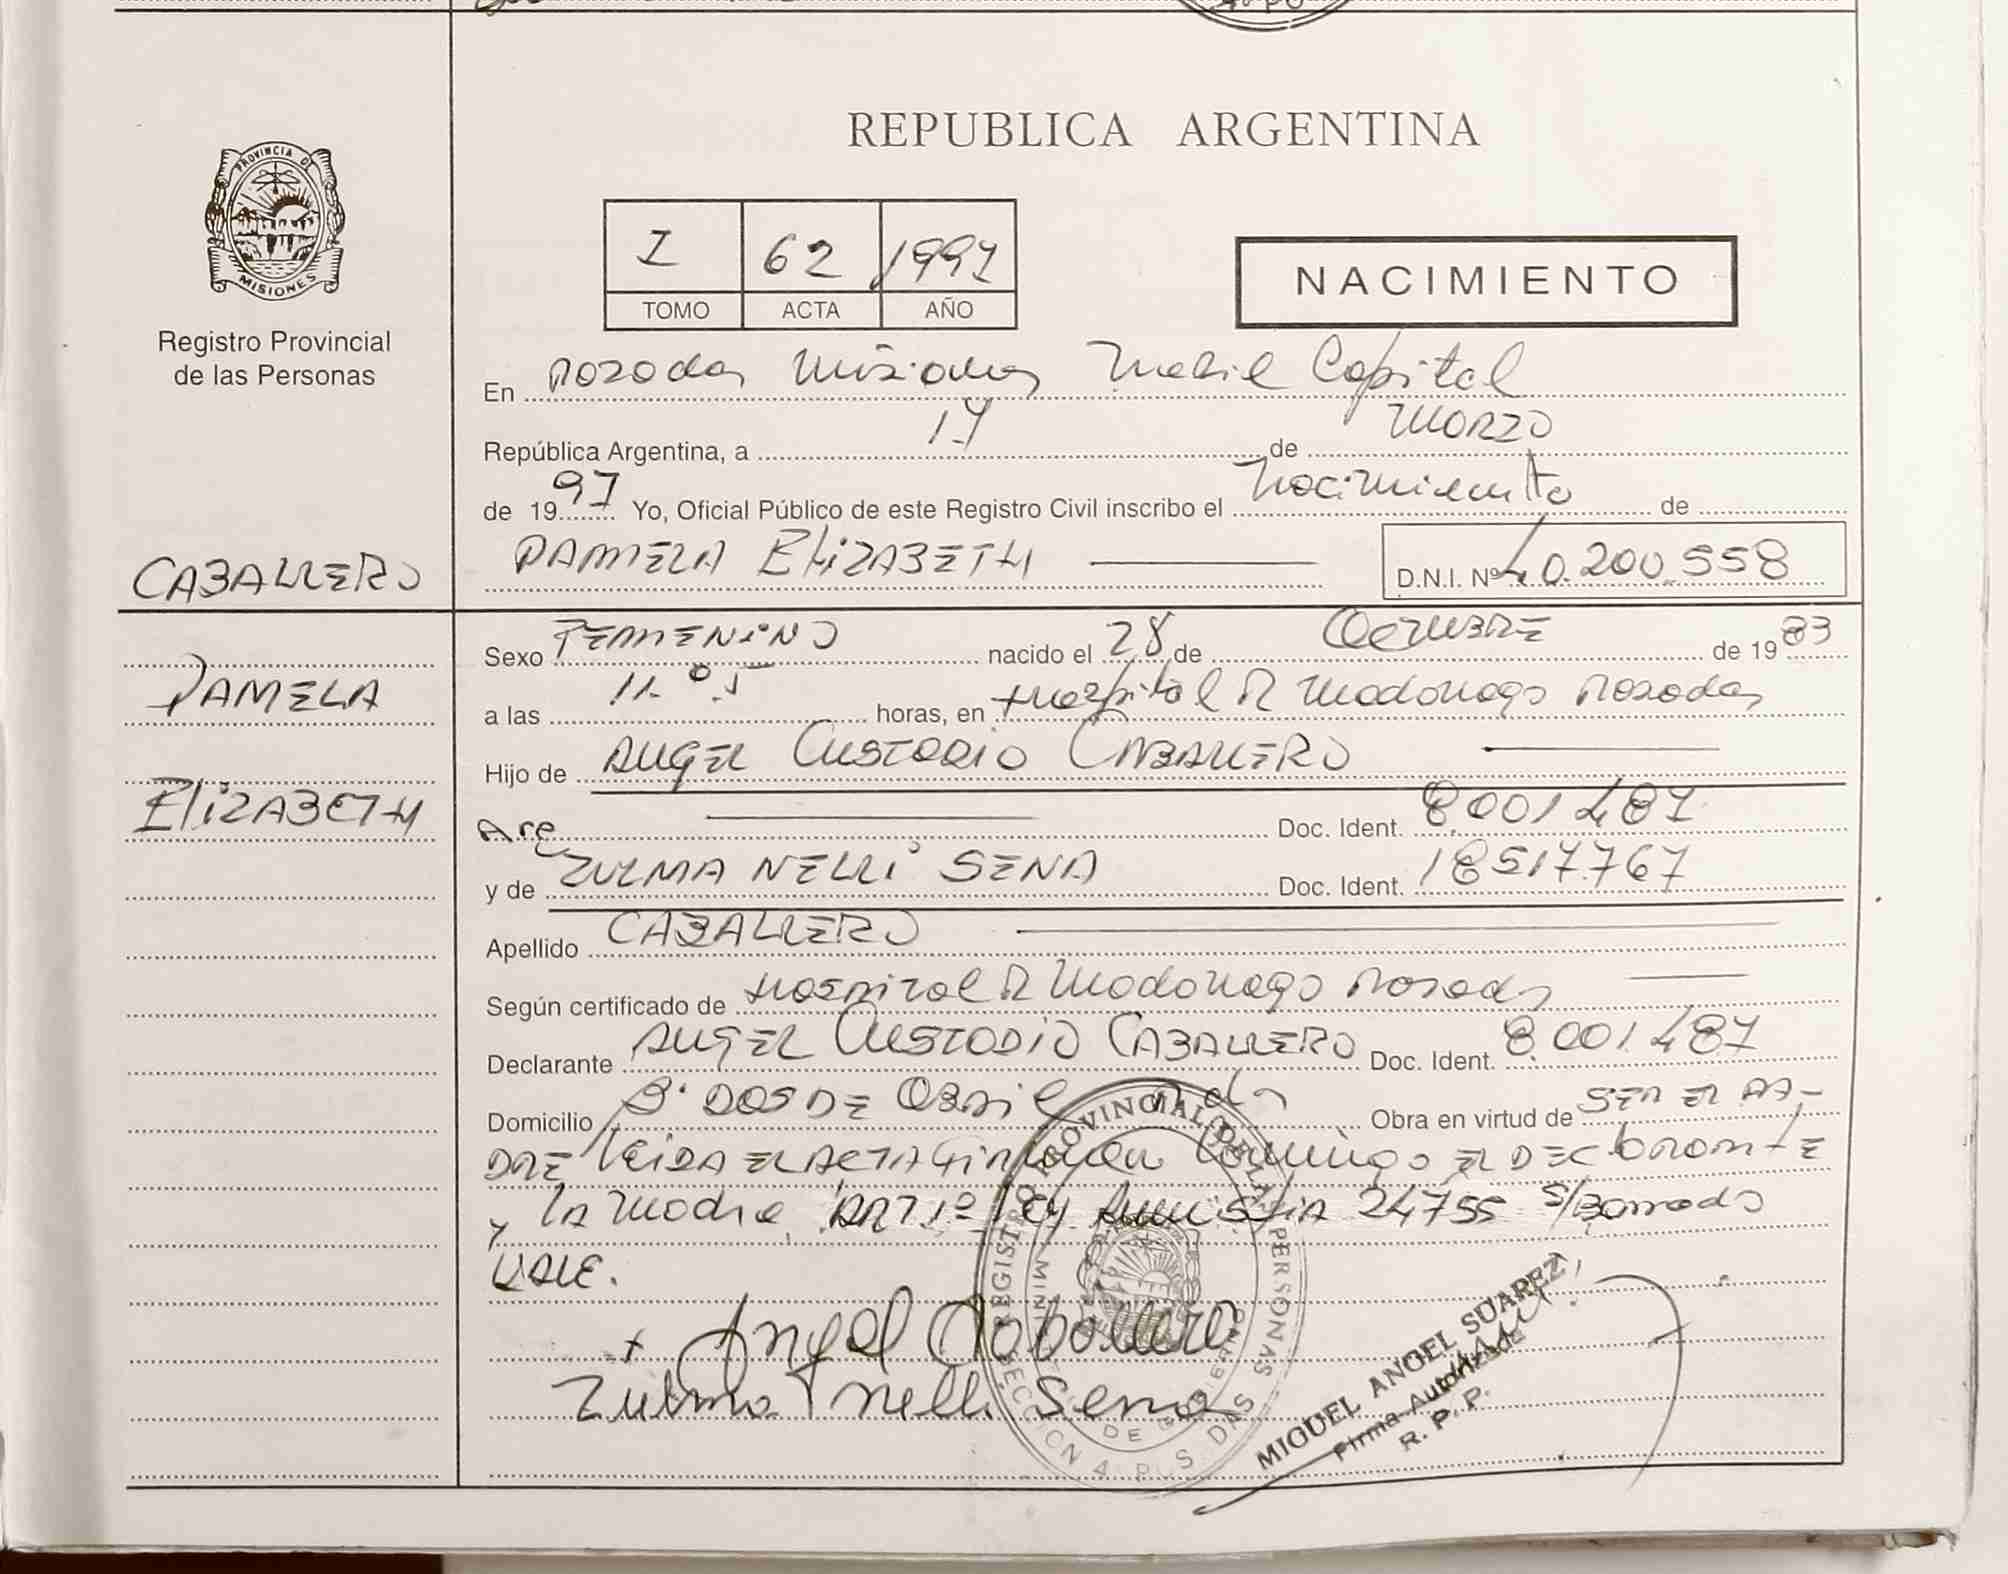 REPUBLICA ARGENTINA
PROVINCIA D
MISIONES
Registro Provincial
de las Personas
I 62 1997
TOMO ACTA AÑO
NACIMIENTO
En Posadas Misiones Capital
República Argentina, a 17 de Marzo
de 1997 Yo, Oficial Público de este Registro Civil inscribo el Nacimiento de
CABALLERO
PAMELA ELIZABETH D.N.I. Nº 40.200.558
PAMELA
ELIZABETH
Sexo FEMENINO nacido el 28 de OCTUBRE de 19
a las 11.05 horas, en Hospital R Madariaga Posadas
Hijo de ANGEL CUSTODIO CABALLERO
Arg Doc. Ident. 8.001.487
y de ZULMA NELLI SENA Doc. Ident. 18517.767
Apellido CABALLERO
Según certificado de Hospital R Madariaga Posadas
Declarante ANGEL CUSTODIO CABALLERO Doc. Ident. 8.001.487
Domicilio Bº DOS DE Abril Pdas Obra en virtud de SER EL PA-
DRE Leida EL ACTA firman conmigo EL DECLARANTE
y LA Madre, ART 1º Ley Amnistia 24755 S/Borrado
VALE.
Angel Caballero
Zulma Nelli Sena
REGISTRO PROVINCIAL DE LAS PERSONAS
SECCION POSADAS
MIGUEL ANGEL SUAREZ
Firma Autorizada
R. P. P.